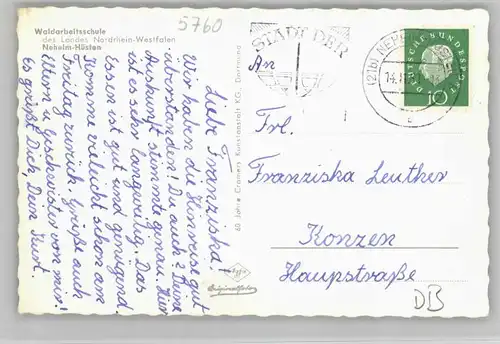 5760
Waldarbeitsschule
des Landes Nordrhein-Westfalen
Neheim-Hüsten
Liebe Franziska!
Wir haben die Hinreise gut
überstanden! Du auch? Deine
Auskunft stimmte genau. Hier
ist es sehr langweilig. Das
Essen ist gut und genügend.
Komme vielleicht schon am
Freitag zurück. Grüße auch
Eltern u. Geschwister von mir!
Es grüßt Dich, Dein Kurt.
60 Jahre Cramers Kunstanstalt KG., Dortmund
Agfa
Originalfoto
STADT DER
(21b) NEHEIM
14.
DEUTSCHE BUNDESPOST
10
An
Frl.
Franziska Leuther
Konzen
Hauptstraße
DB